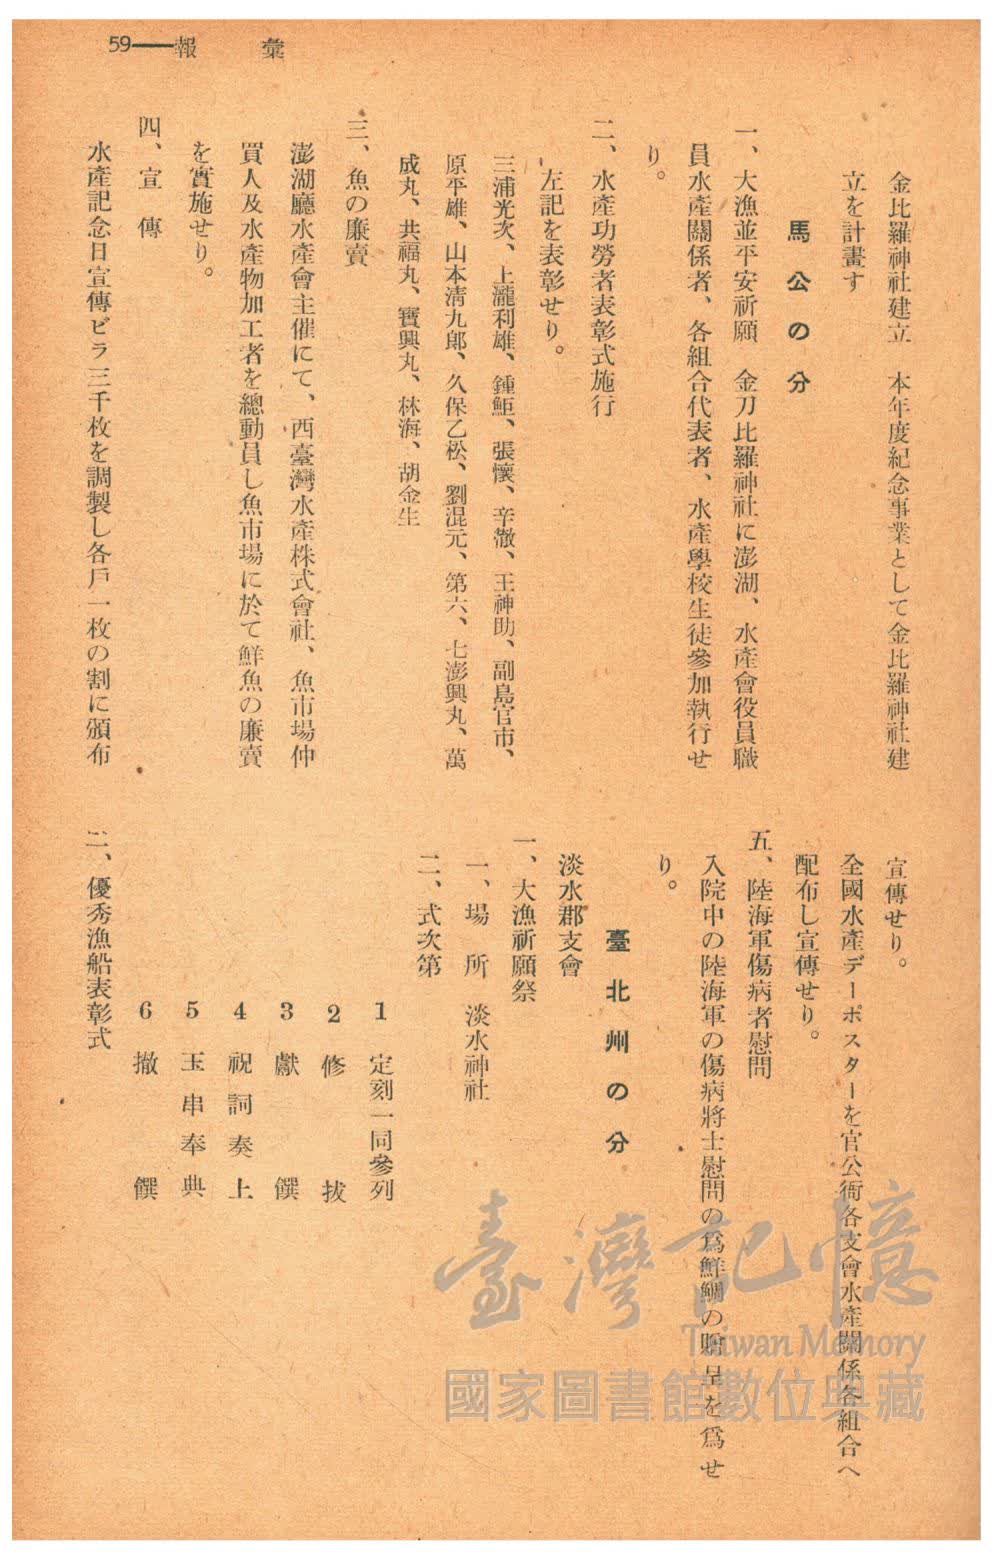 彙報——59
金比羅神社建立　本年度紀念事業として金比羅神社建
立を計畫す
馬公の分
一、大漁並平安祈願　金刀比羅神社に澎湖、水產會役員職
員水產關係者、各組合代表者、水產學校生徒參加執行せ
り。
二、水產功勞者表彰式施行
左記を表彰せり。
三浦光次、上瀧利雄、鍾鉅、張懷、辛澂、王神助、副島官市、
原平雄、山本淸九郎、久保乙松、劉混元、第六、七澎興丸、萬
成丸、共福丸、寶興丸、林海、胡金生
三、魚の廉賣
澎湖廳水產會主催にて、西臺灣水產株式會社、魚市場仲
買人及水產物加工者を總動員し魚市場に於て鮮魚の廉賣
を實施せり。
四、宣傳
水產記念日宣傳ビラ三千枚を調製し各戶一枚の割に頒布
宣傳せり。
全國水產デーポスターを官公衙各支會水產關係各組合へ
配布し宣傳せり。
五、陸海軍傷病者慰問
入院中の陸海軍の傷病將士慰問の爲鮮鯛の贈呈を爲せ
り。
臺北州の分
淡水郡支會
一、大漁祈願祭
一、場所　淡水神社
二、式次第
1　定刻一同參列
2　修拔
3　獻饌
4　祝詞奏上
5　玉串奉典
6　撤饌
二、優秀漁船表彰式
臺灣記憶
Taiwan Memory
國家圖書館數位典藏